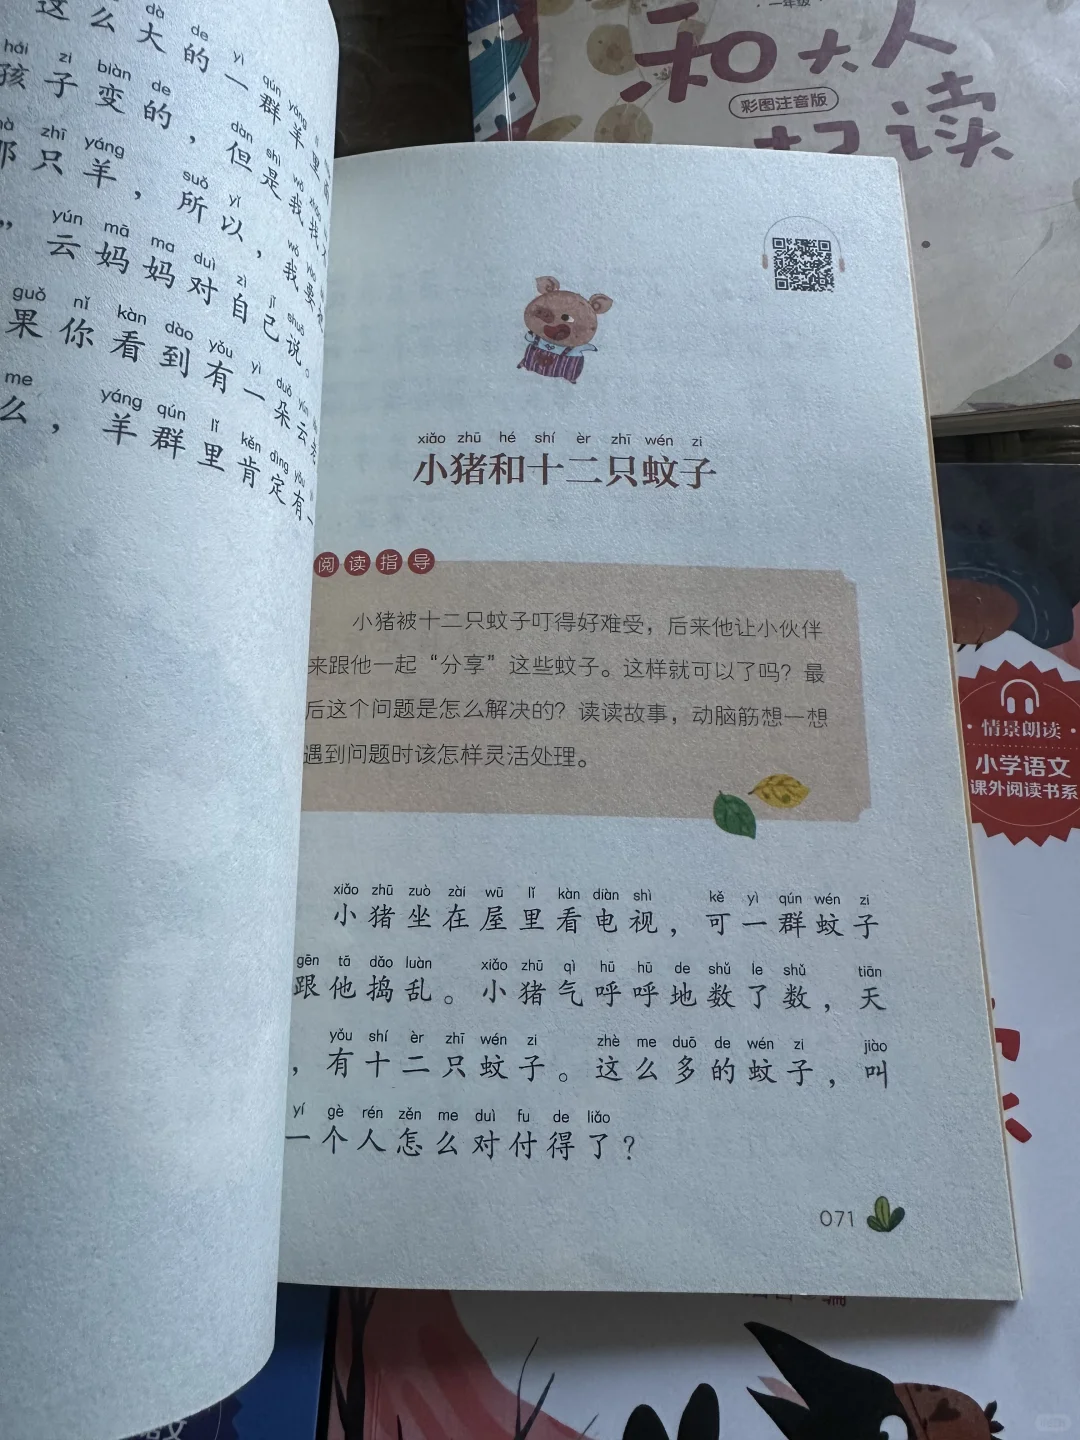 dà de yì qún yáng
这么大的一群羊里
hái zi biàn de dàn shì wǒ
孩子变的，但是我找
zhī yáng suǒ yǐ wǒ
那只羊，所以，我要
yún mā ma duì zì jǐ shuō
”云妈妈对自己说。
guǒ nǐ kàn dào yǒu yì duǒ yún
果你看到有一朵云
me yáng qún lǐ kěn dìng yǒu
么，羊群里肯定有一
xiǎo zhū hé shí èr zhī wén zi
小猪和十二只蚊子
阅读指导
小猪被十二只蚊子叮得好难受，后来他让小伙伴
来跟他一起“分享”这些蚊子。这样就可以了吗？最
后这个问题是怎么解决的？读读故事，动脑筋想一想
遇到问题时该怎样灵活处理。
xiǎo zhū zuò zài wū lǐ kàn diàn shì kě yì qún wén zi
小猪坐在屋里看电视，可一群蚊子
gēn tā dǎo luàn xiǎo zhū qì hū hū de shǔ le shǔ tiān
跟他捣乱。小猪气呼呼地数了数，天
yǒu shí èr zhī wén zi zhè me duō de wén zi jiào
，有十二只蚊子。这么多的蚊子，叫
yí gè rén zěn me duì fu de liǎo
一个人怎么对付得了？
071
一年级
和大人
彩图注音版
读
情景朗读
小学语文
课外阅读书系